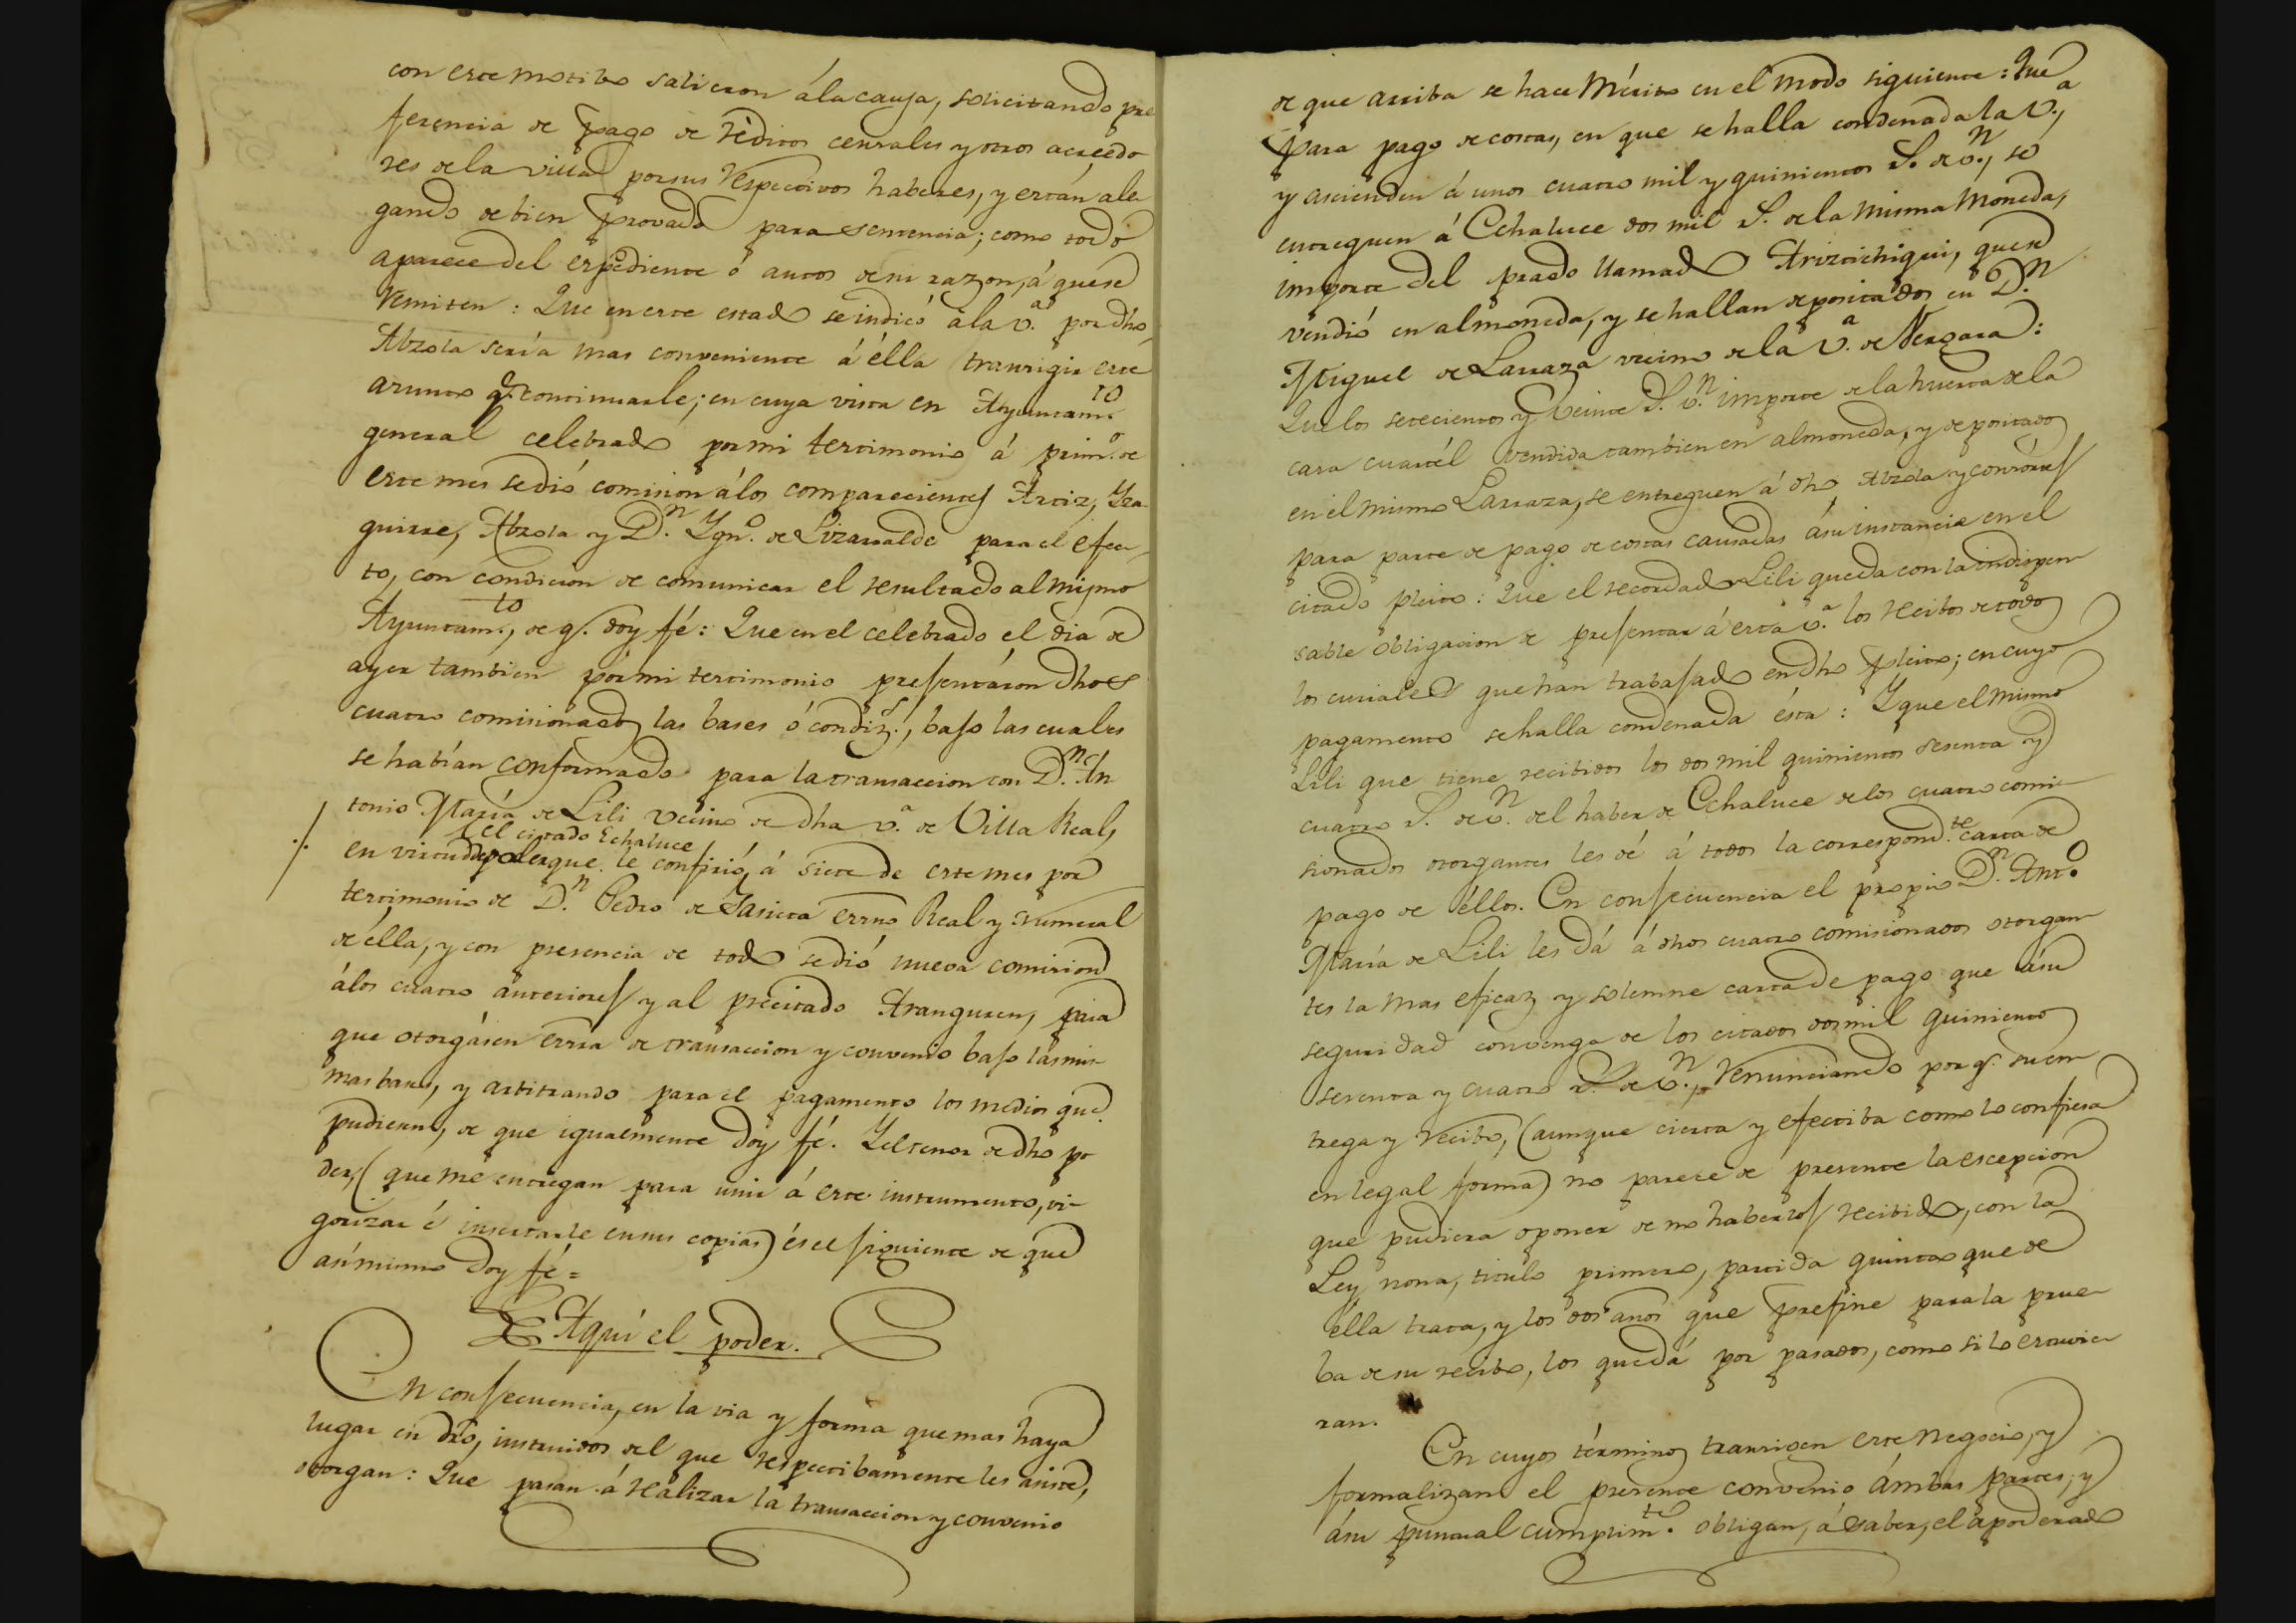 con este motibo salieron á la causa, solicitando pre
ferencia de pago de réditos censales y otros acreedo
res de la villa por sus respectivos haberes, y están ale
gando de bien provado para sentencia; como todo
aparece del expediente ó autos de su razon, á que se
remiten: Que en este estado se indicó á la v.ª por dho
Abzola sería mas conveniente á élla transigir este
asunto q. continuarle; en cuya vista en Ayuntam.to
general celebrado por mi testimonio á prim.o de
este mes se dió comision á los comparecientes Artiz, Yza
guirre, Abzola y D.n Ygn.o de Lizarralde para el efec
to, con condicion de comunicar el resultado al mismo
Ayuntam.to, de q. doy fé: Que en el celebrado el dia de
ayer tambien por mi testimonio presentáron dhos
cuatro comisionados las bases ó condiz.s, bajo las cuales
se habían conformado para la transaccion con D.n An
tonio María de Lili vecino de dha v.ª de Villa Real,
el citado Echaluce
en virtud de poder que le confirió, á siete de este mes por
testimonio de D.n Pedro de Yasieta essno Real y numeral
de élla, y con presencia de todo se dió nueva comision
á los cuatro anteriores y al precitado Aranguren, para
que otorgásen essra de transaccion y convenio bajo las mis
mas bases, y arbitrando para el pagamento los medios que
pudiesen, de que igualmente doy fé. Y el tenor de dho po
der, (que me entregan para unir á este instrumento, vi-
gorizar é insertarle en sus copias) és el siguiente de que
asímismo doy fé =
Aquí el poder.
En consecuencia, en la via y forma que mas haya
lugar en dro, instruidos del que respectibamente les asiste,
otorgan: Que pasan á realizar la transaccion y convenio
de que arriba se hace mérito en el modo siguiente: Que
para pago de costas, en que se halla condenada la v.ª,
y ascienden á unos cuatro mil y quinientos r.s de v.n, se
entreguen á Echaluce dos mil r.s de la misma moneda,
importe del prado llamado Ariztichigui, que se
vendió en almoneda, y se hallan depositados en D.n
Miguel de Larraza vecino de la v.ª de Vergara:
Que los setecientos y veinte r.s v.n importe de la huerta de la
casa cuartél vendida tambien en almoneda, y depositados
en el mismo Larraza, se entreguen á dho Abzola y consortes
para parte de pago de costas causadas á su instancia en el
citado pleito: Que el recordado Lili queda con la indispen
sable obligacion de presentar á esta v.ª los recibos de todos
los curiales que han trabajado en dho pleito; en cuyo
pagamento se halla condenada ésta: Y que el mismo
Lili que tiene recibidos los dos mil quinientos sesenta y
cuatro r.s de v.n del haber de Echaluce de los cuatro comi-
sionados otorgantes les dé á todos la correspond.te carta de
pago de éllos. En consecuencia el propio D.n Ant.o
María de Lili les dá á dhos cuatro comisionados otorgan
tes la mas eficaz y solemne carta de pago que á su
seguridad convenga de los citados dos mil quinientos
sesenta y cuatro r.s de v.n, renunciando por q. su en
trega y recibo, (aunque cierta y efectiba como lo confiesa
en legal forma) no parece de presente la escepcion
que pudiera oponer de no haberlos recibido, con la
Ley nona, titulo primero, partida quinta que de
élla trata, y los dos años que prefine para la prue
ba de su recibo, los que dá por pasados, como si lo estuvie
ran.
En cuyos términos transigen este negocio, y
formalizan el presente convenio ámbas partes; y
á su puntual cumplim.to obligan, á saber, el apoderado